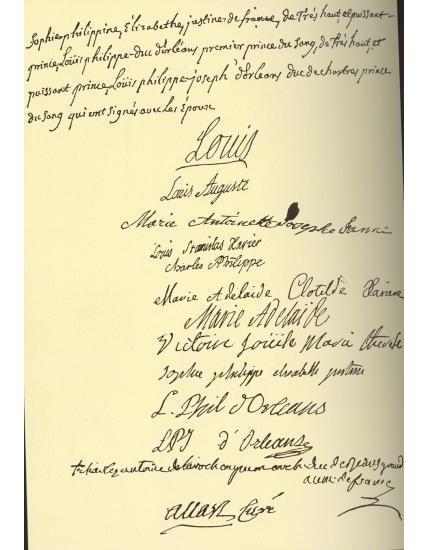 Sophie philippine, Elizabethe, justine de france, de Très haut et puissant
prince, Louis philippe duc d'orleans premier prince du sang, de Très haut et
puissant prince Louis philippe joseph d'orleans duc de chartres prince
du sang qui ont signés avec les Epoux
Louis
Louis Auguste
Marie Antoinette Josepha Jeanne
Louis Stanislas Xavier
Charles Philippe
Marie Adelaide Clotilde Xaviere
Marie Adelaide
Victoire Louise Marie Therese
Sophie philippe elizabette justine
L. Phil d'Orleans
LPJ d'Orleans
de
aum. de france
allart Curé